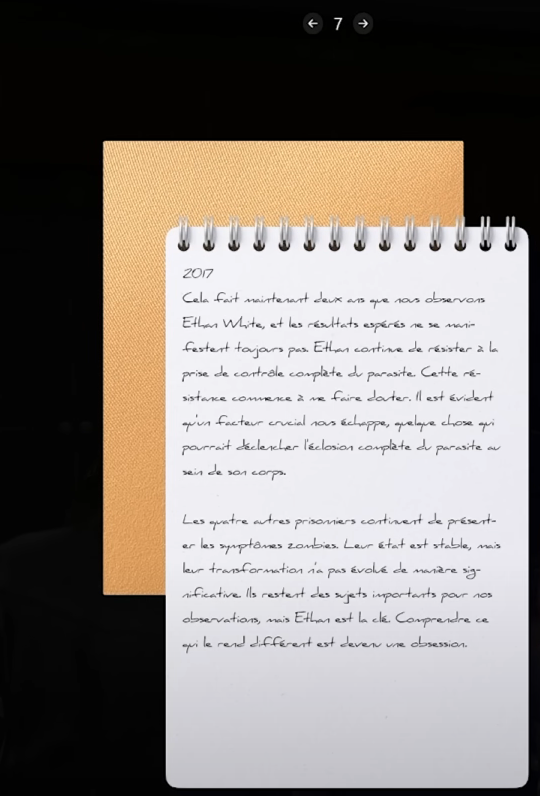 7
2017
Cela fait maintenant deux ans que nous observons
Ethan White, et les résultats espérés ne se mani-
festent toujours pas. Ethan continue de résister à la
prise de contrôle complète du parasite. Cette ré-
sistance commence à me faire douter. Il est évident
qu'un facteur crucial nous échappe, quelque chose qui
pourrait déclencher l'éclosion complète du parasite au
sein de son corps.
Les quatre autres prisonniers continuent de présent-
er les symptômes zombies. Leur état est stable, mais
leur transformation n'a pas évolué de manière sig-
nificative. Ils restent des sujets importants pour nos
observations, mais Ethan est la clé. Comprendre ce
qui le rend différent est devenu une obsession.